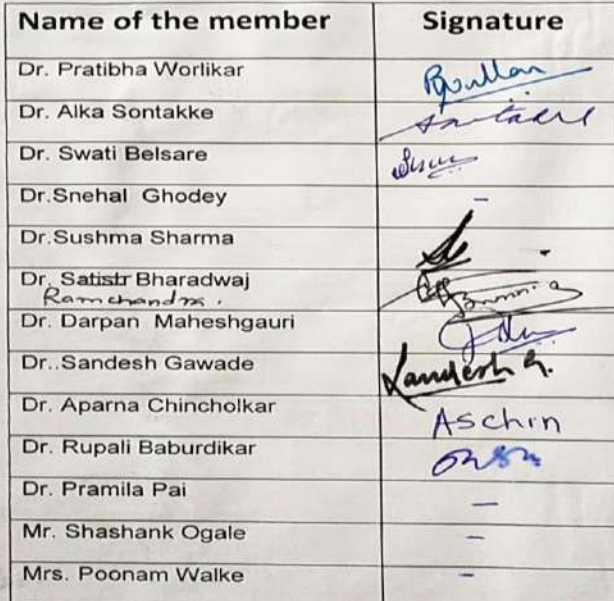 Name of the member Signature
Dr. Pratibha Worlikar
Dr. Alka Sontakke
Dr. Swati Belsare
Dr.Snehal Ghodey –
Dr.Sushma Sharma
Dr. Satistr Bharadwaj
Ramchandra.
Dr. Darpan Maheshgauri
Dr..Sandesh Gawade Sandesh G.
Dr. Aparna Chincholkar Aschin
Dr. Rupali Baburdikar
Dr. Pramila Pai –
Mr. Shashank Ogale –
Mrs. Poonam Walke –